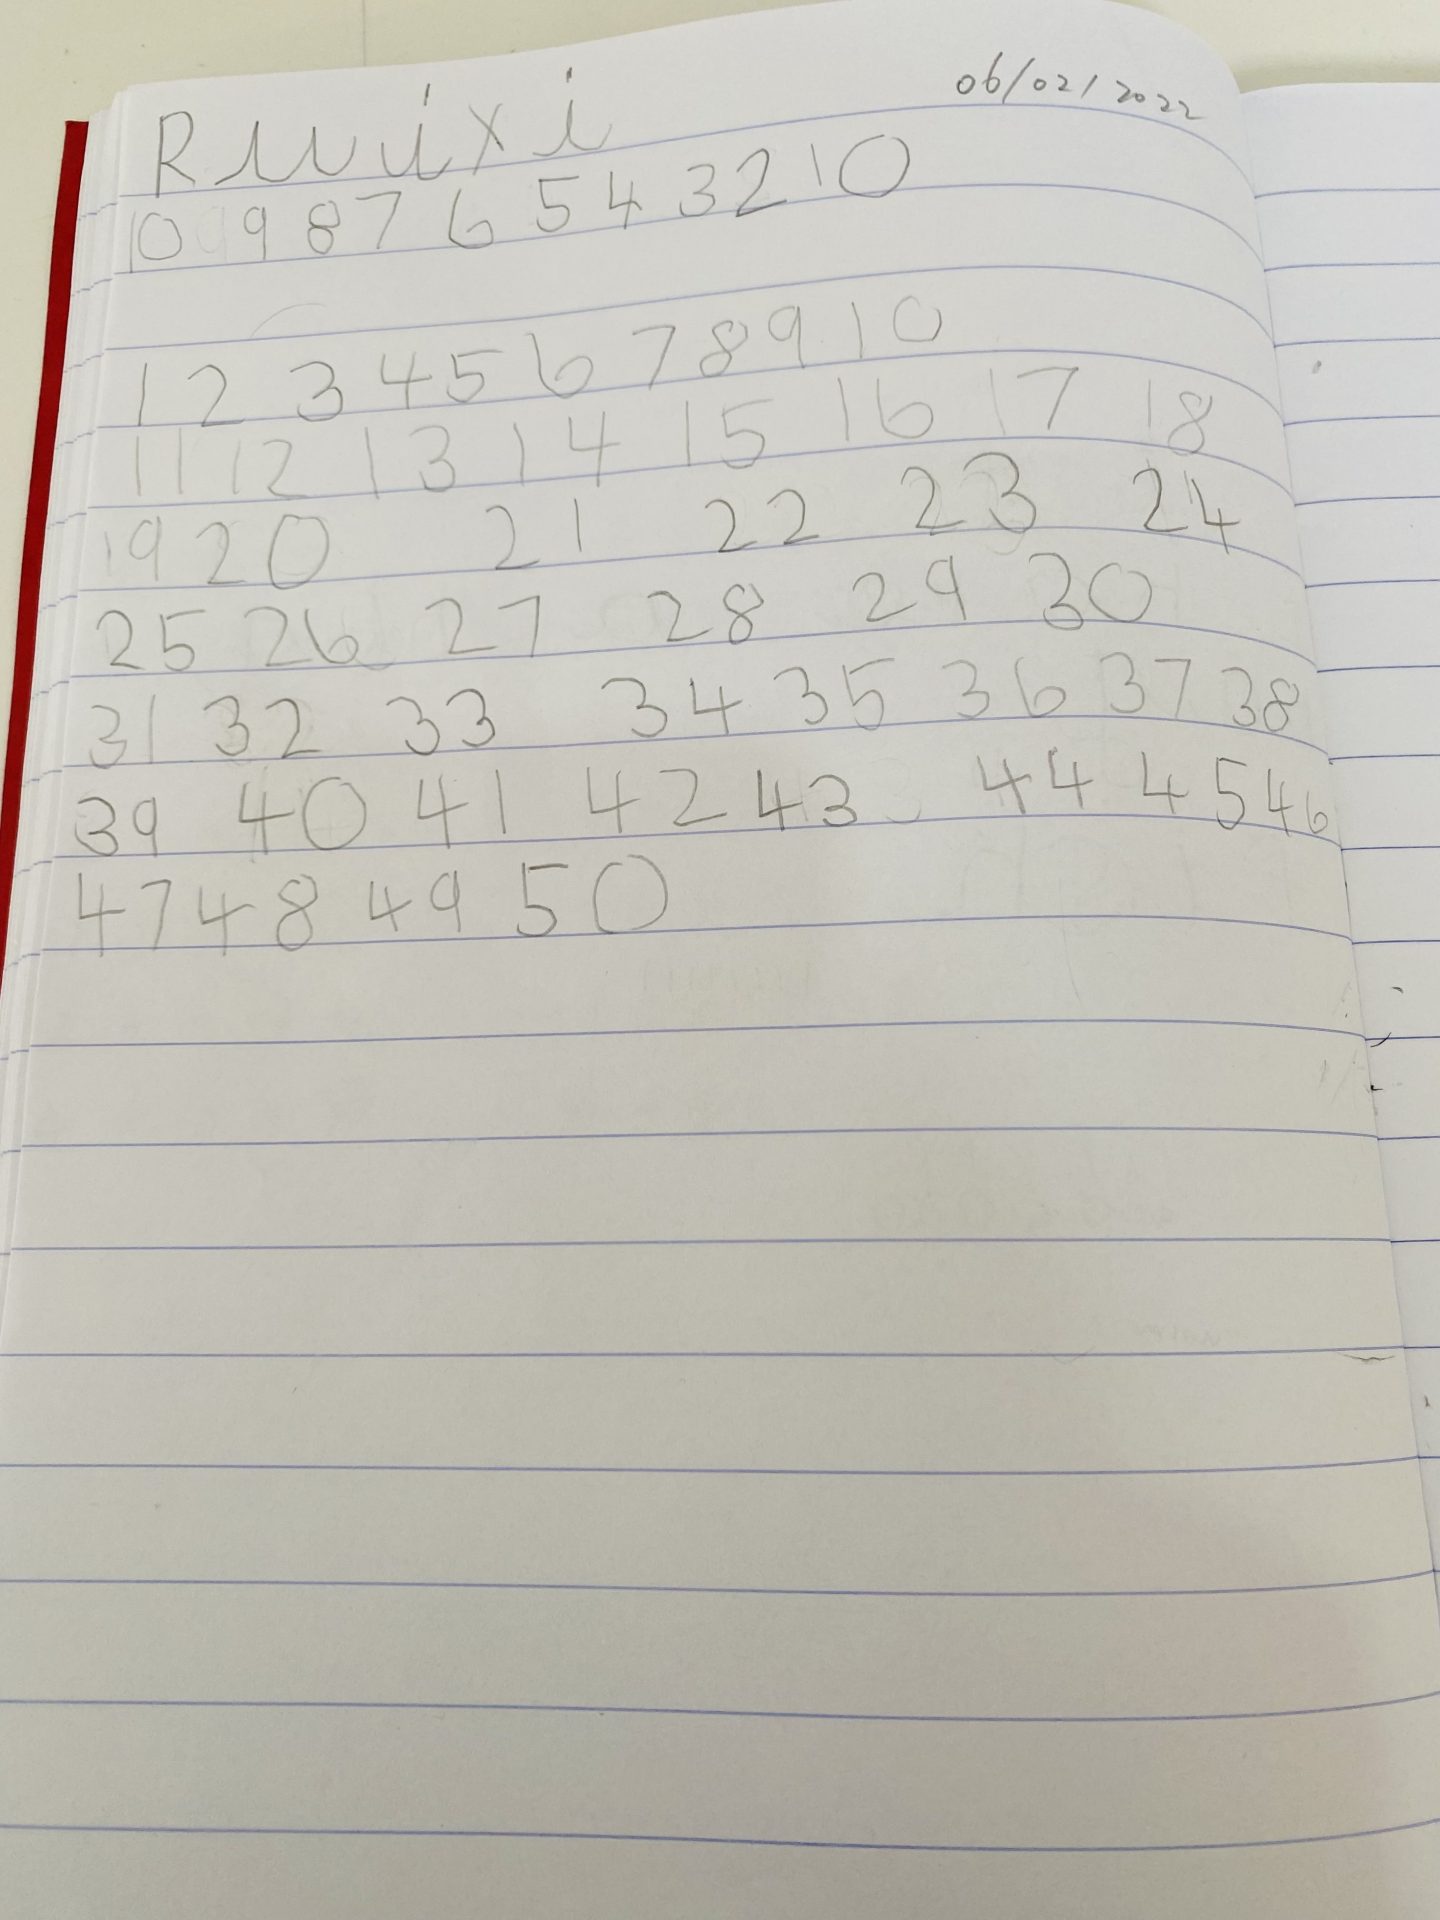 06/02/2022
Ruixi
10 9 8 7 6 5 4 3 2 1 0
1 2 3 4 5 6 7 8 9 10
11 12 13 14 15 16 17 18
19 20 21 22 23 24
25 26 27 28 29 30
31 32 33 34 35 36 37 38
39 40 41 42 43 44 45 46
47 48 49 50